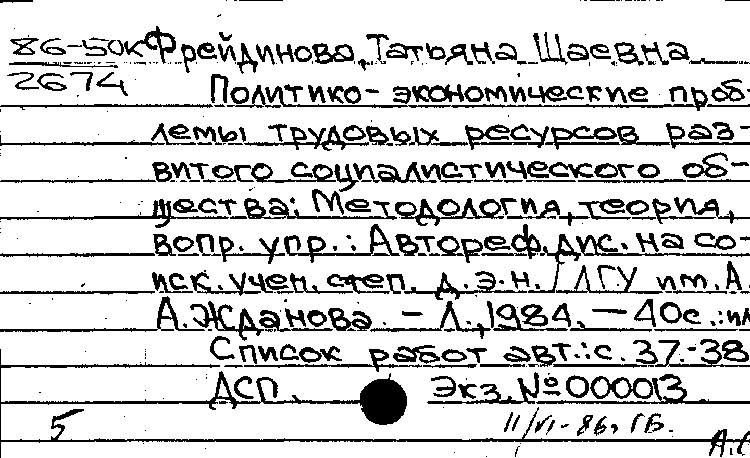 86-50к Фрейдинова, Татьяна Шаевна.
2674
Политико-экономические проб-
лемы трудовых ресурсов раз-
витого социалистического об-
щества: Методология, теория,
вопр. упр.: Автореф. дис. на со-
иск. учен. степ. д.э.н. / ЛГУ им. А.
А. Жданова. - Л., 1984. - 40с.: ил
Список работ авт.: с. 37-38
ДСП. Экз. № 000013.
5 11/VI-86, ГБ.